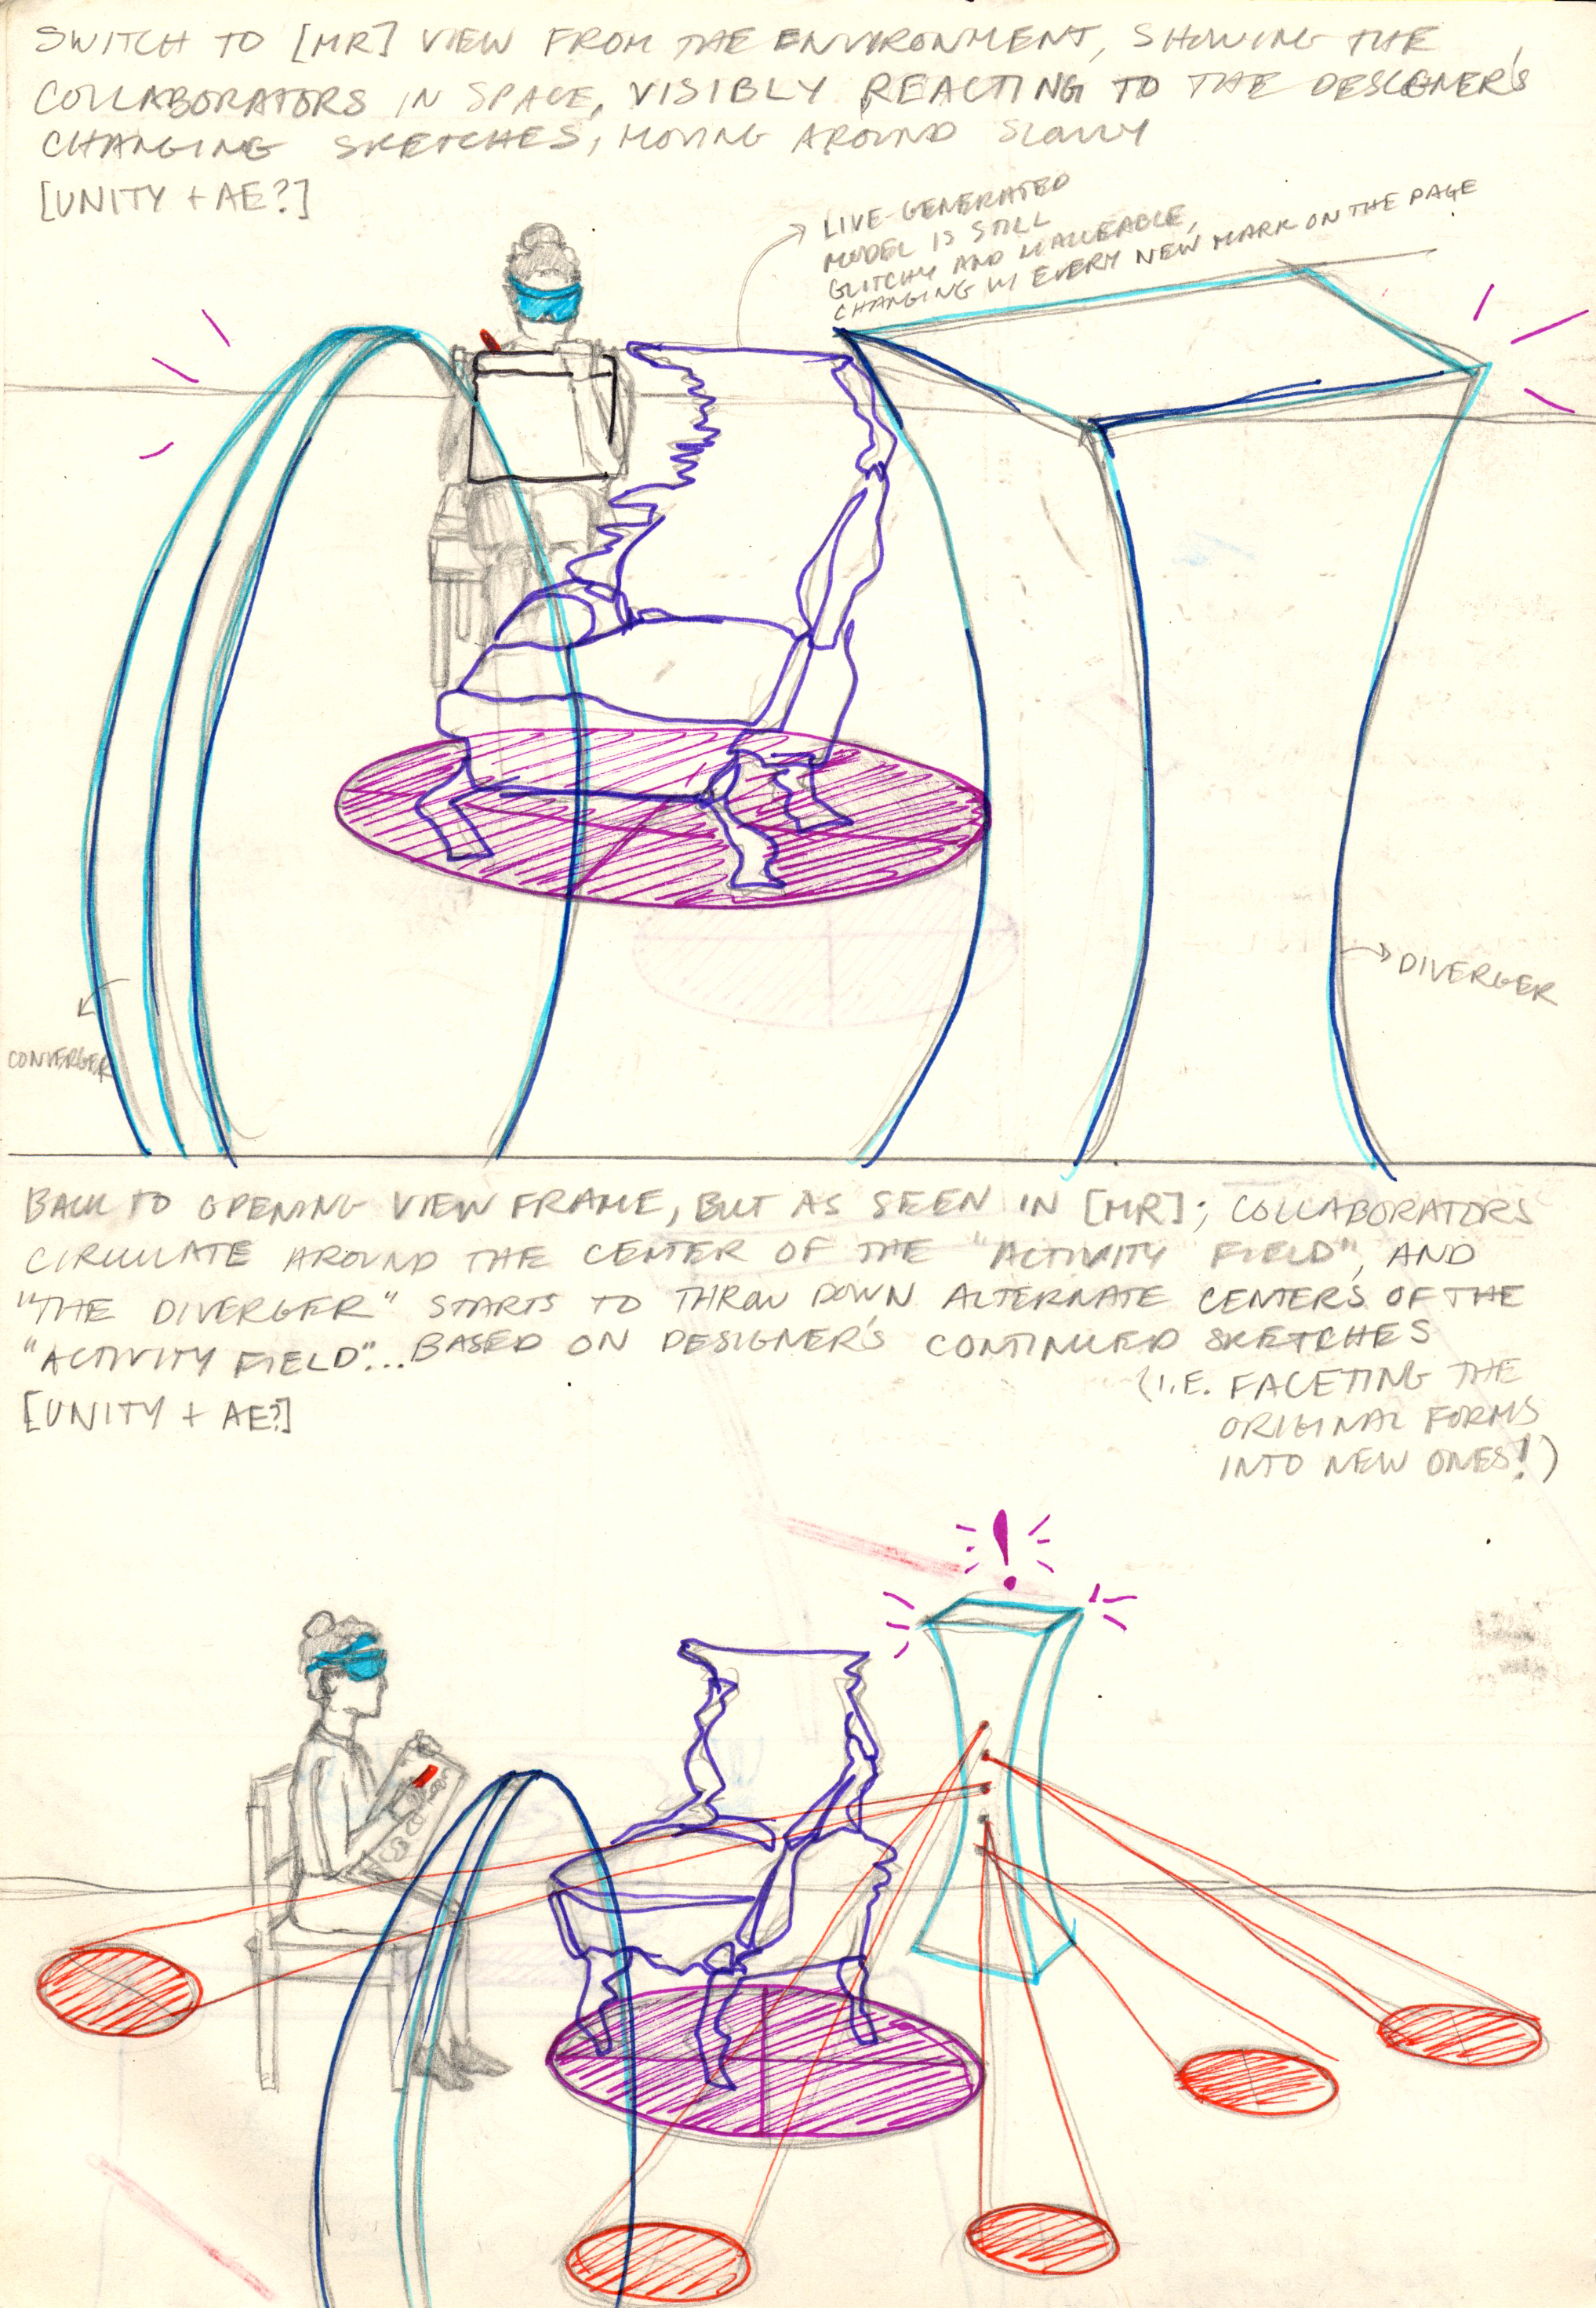 SWITCH TO [MR] VIEW FROM THE ENVIRONMENT, SHOWING THE
COLLABORATORS IN SPACE, VISIBLY REACTING TO THE DESIGNER'S
CHANGING SKETCHES, MOVING AROUND SLOWLY
[UNITY + AE?]
LIVE-GENERATED
MODEL IS STILL
GLITCHY AND MALLEABLE,
CHANGING W/ EVERY NEW MARK ON THE PAGE
DIVERGER
CONVERGER
BACK TO OPENING VIEW FRAME, BUT AS SEEN IN [MR]; COLLABORATORS
CIRCULATE AROUND THE CENTER OF THE "ACTIVITY FIELD", AND
"THE DIVERGER" STARTS TO THROW DOWN ALTERNATE CENTERS OF THE
"ACTIVITY FIELD"... BASED ON DESIGNER'S CONTINUED SKETCHES
(I.E. FACETING THE
ORIGINAL FORMS
INTO NEW ONES!)
[UNITY + AE?]
!